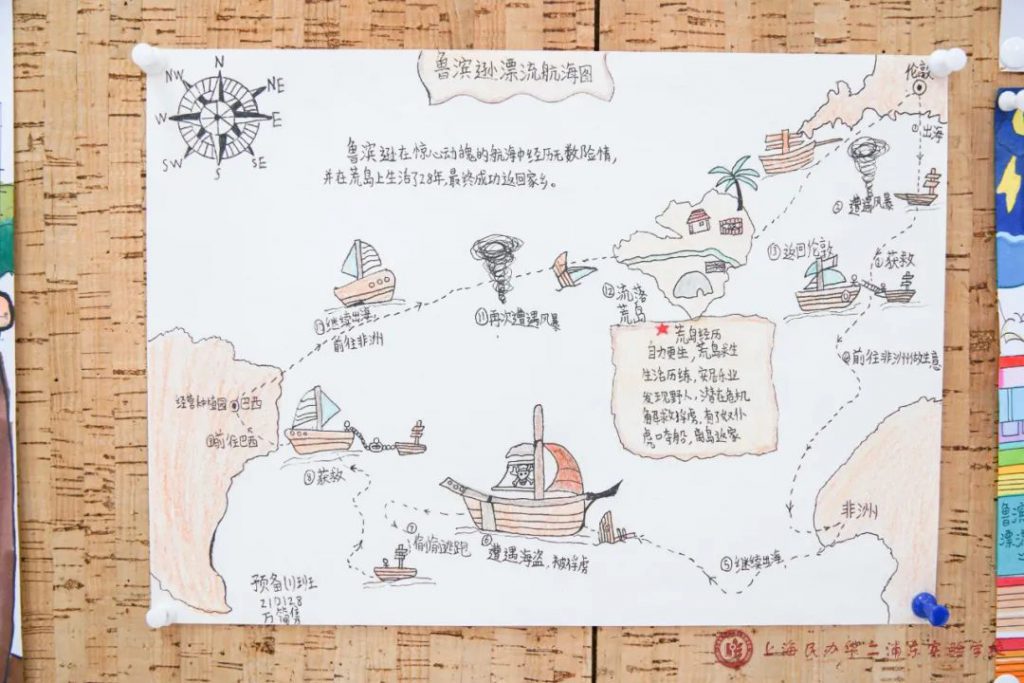 鲁滨逊漂流航海图
N
NE
E
SE
S
SW
W
NW
鲁滨逊在惊心动魄的航海中经历无数险情,
并在荒岛上生活了28年,最终成功返回家乡。
伦敦
①出海
②遭遇风暴
③获救
④前往非洲做生意
非洲
⑤继续出海
⑥遭遇海盗,被俘虏
⑦偷偷逃跑
⑧获救
⑨前往巴西
经营种植园
巴西
继续出海
前往非洲
⑪再次遭遇风暴
⑫流落
荒岛
⑬返回伦敦
荒岛经历
自力更生,荒岛求生
生活历练,安居乐业
发现野人,潜在危机
解救俘虏,有了奴仆
虎口夺船,离岛返家
预备(1)班
210128
上海民办华二浦东实验学校